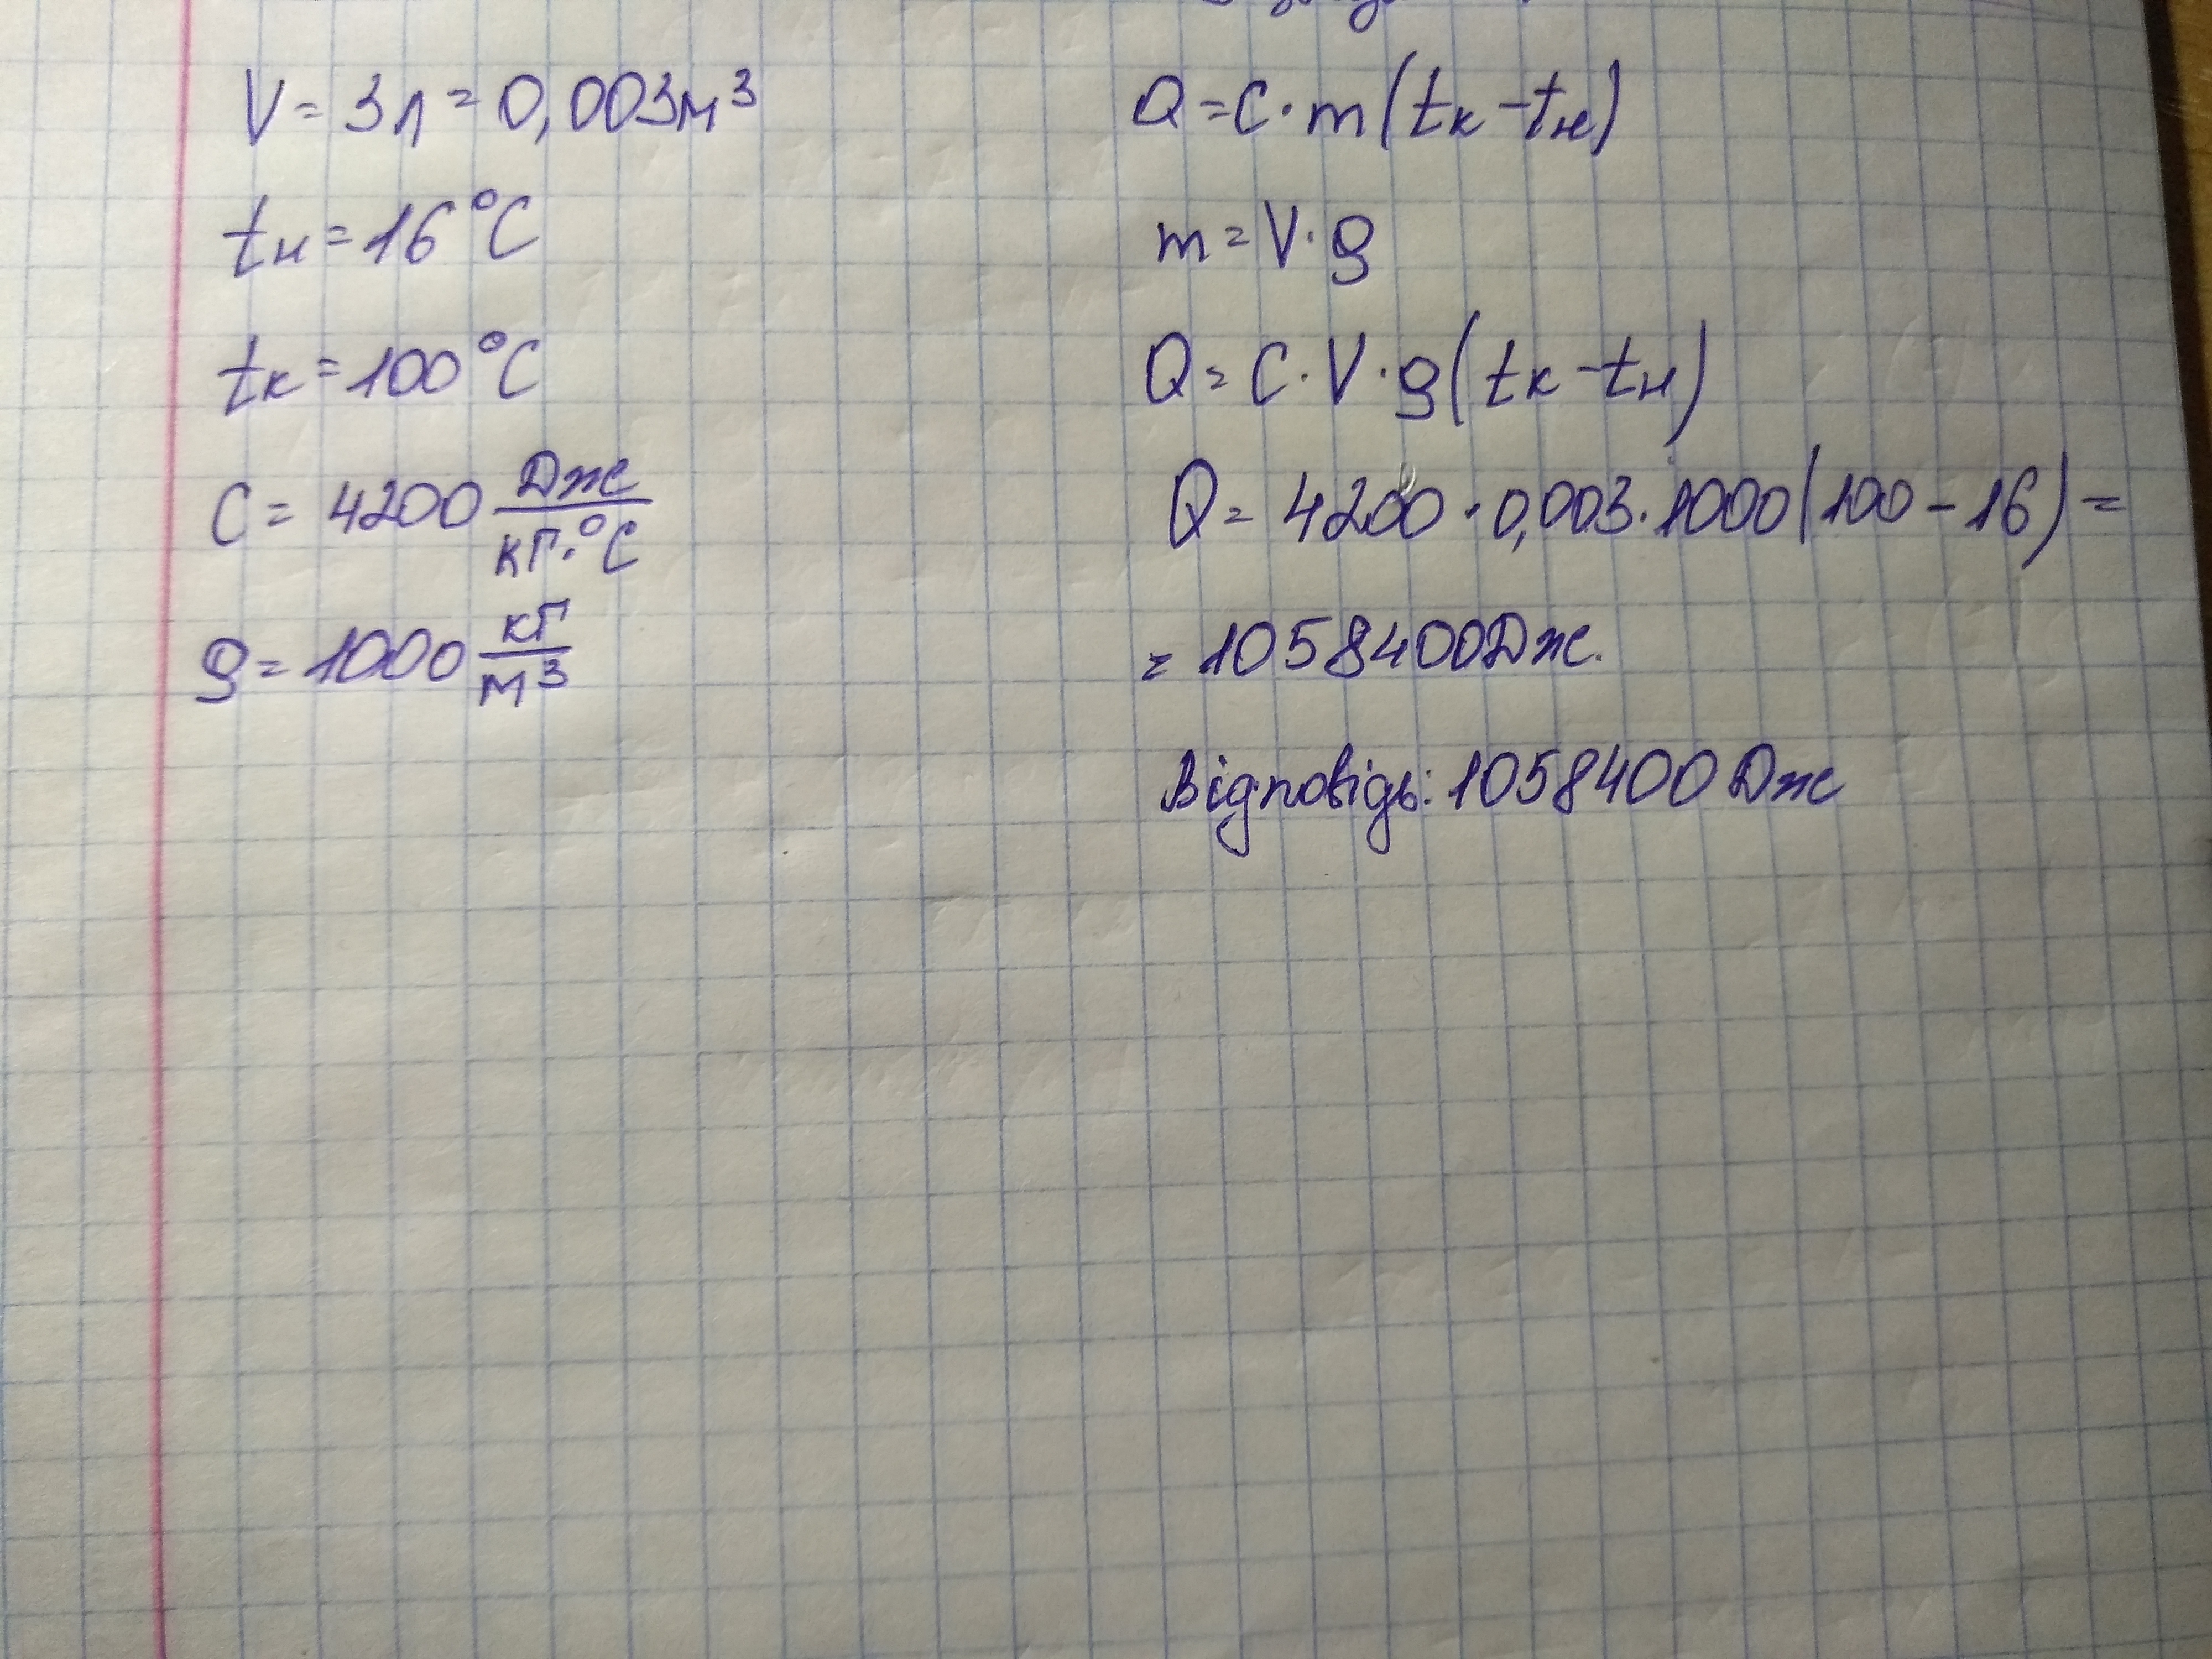 V = 3л = 0,003м³
tн = 16°C
tк = 100°C
C = 4200 Дж/кг·°C
ρ = 1000 кг/м³
Q = C·m(tк - tн)
m = V·ρ
Q = C·V·ρ(tк - tн)
Q = 4200·0,003·1000(100 - 16) =
= 1058400Дж.
Відповідь: 1058400 Дж